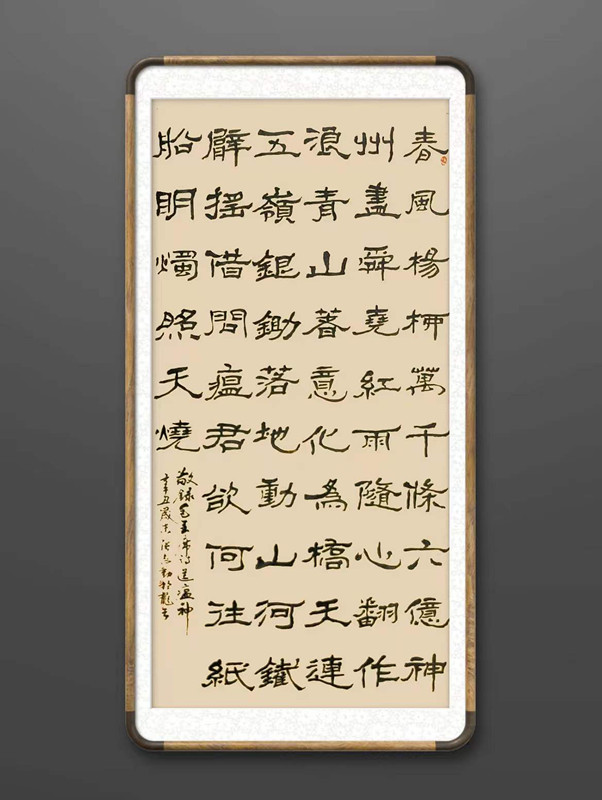 春風楊柳萬千條六億神
州盡舜堯紅雨隨心翻作
浪青山著意化為橋天連
五嶺銀鋤落地動山河鐵
臂搖借問瘟君欲何往紙
船明燭照天燒
敬録毛主席詩送瘟神
辛丑歲末